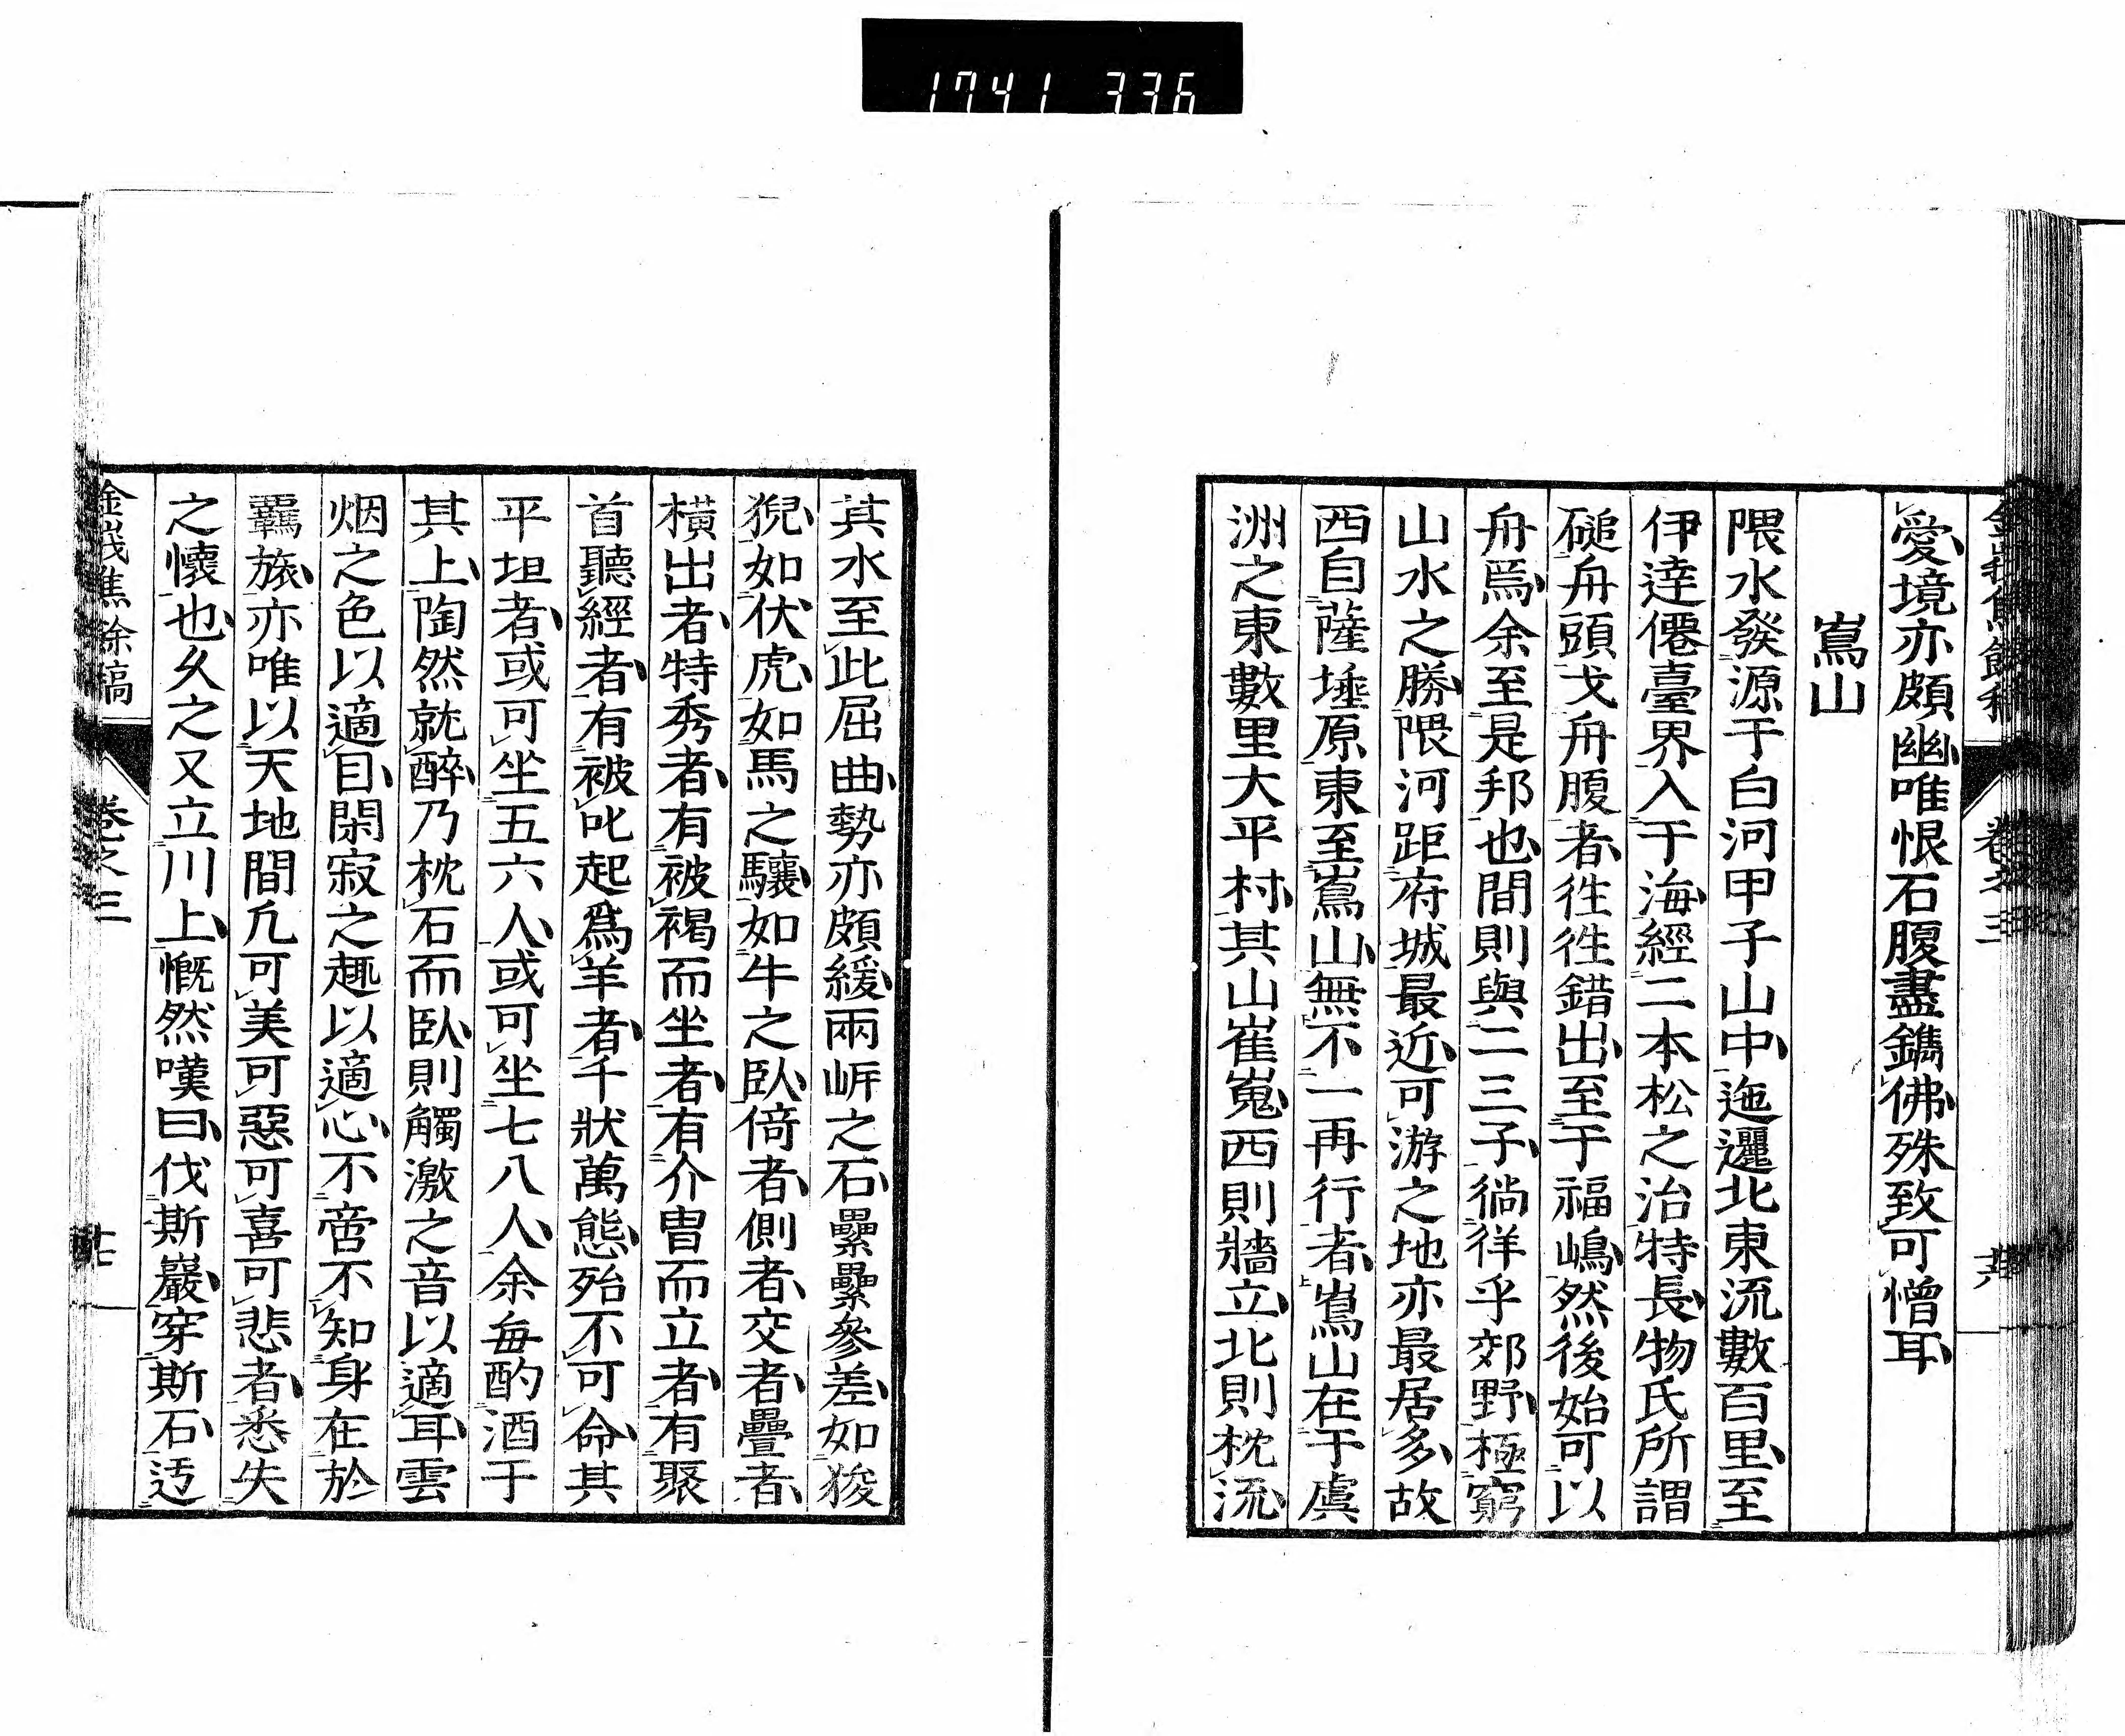 1741 336
愛境亦頗幽唯恨石腹盡鐫佛殊致可憎耳
嶌山
隈水發源于白河甲子山中迤邐北東流數百里至
伊達僊臺界入于海經二本松之治特長物氏所謂
磓舟頭戈舟腹者徃徃錯出至于福嶋然後始可以
舟焉余至是邦也間則與二三子徜徉乎郊野極窮
山水之勝隈河距府城最近可游之地亦最居多故
西自薩埵原東至嶌山無不一再行者嶌山在于虞
洲之東數里大平村其山崔嵬西則牆立北則枕流
其水至此屈曲勢亦頗緩兩岍之石纍纍參差如狻
猊如伏虎如馬之驤如牛之臥倚者側者交者疊者
橫出者特秀者有被褐而坐者有介冑而立者有聚
首聽經者有被叱起爲羊者千狀萬態殆不可命其
平坦者或可坐五六人或可坐七八人余每酌酒于
其上陶然就醉乃枕石而臥則觸激之音以適耳雲
烟之色以適目閑寂之趣以適心不啻不知身在於
羈旅亦唯以天地間凢可美可惡可喜可悲者悉失
之懷也久之又立川上慨然嘆曰伐斯巖穿斯石迊
卷之三